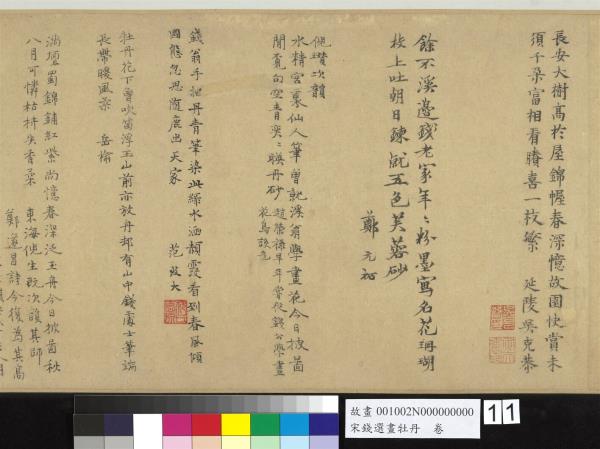 長安大樹高於屋錦幄春深憶故園快賞未
須千朵富相看賸喜一枝繁 延陵吳克恭
餘不溪邊錢老家年〻粉墨寫名花珊瑚
枝上吐朝日鍊就五色芙蓉砂
鄭元祐
倪瓚次韻
水精宮裏仙人筆曾就溪翁學畫花今日披圖
閒賣向空青𤣥〻賸丹砂
錢翁手把丹青筆染此綠水酒靧霞看到春風傾
國態忽思隨鹿出天家
范致大
牡丹花下曾吹笛浮玉山前亦放舟却有山中錢處士筆端
長帶暖風柔 岳榆
滿壇蜀錦鋪紅紫尚憶春深泛玉舟今日披圖秋
八月可憐枯梓失香柔
東海倪生既次韻其師
鄭遂昌詩今復為其高
故畫 001002N000000000
宋錢選畫牡丹 卷
11